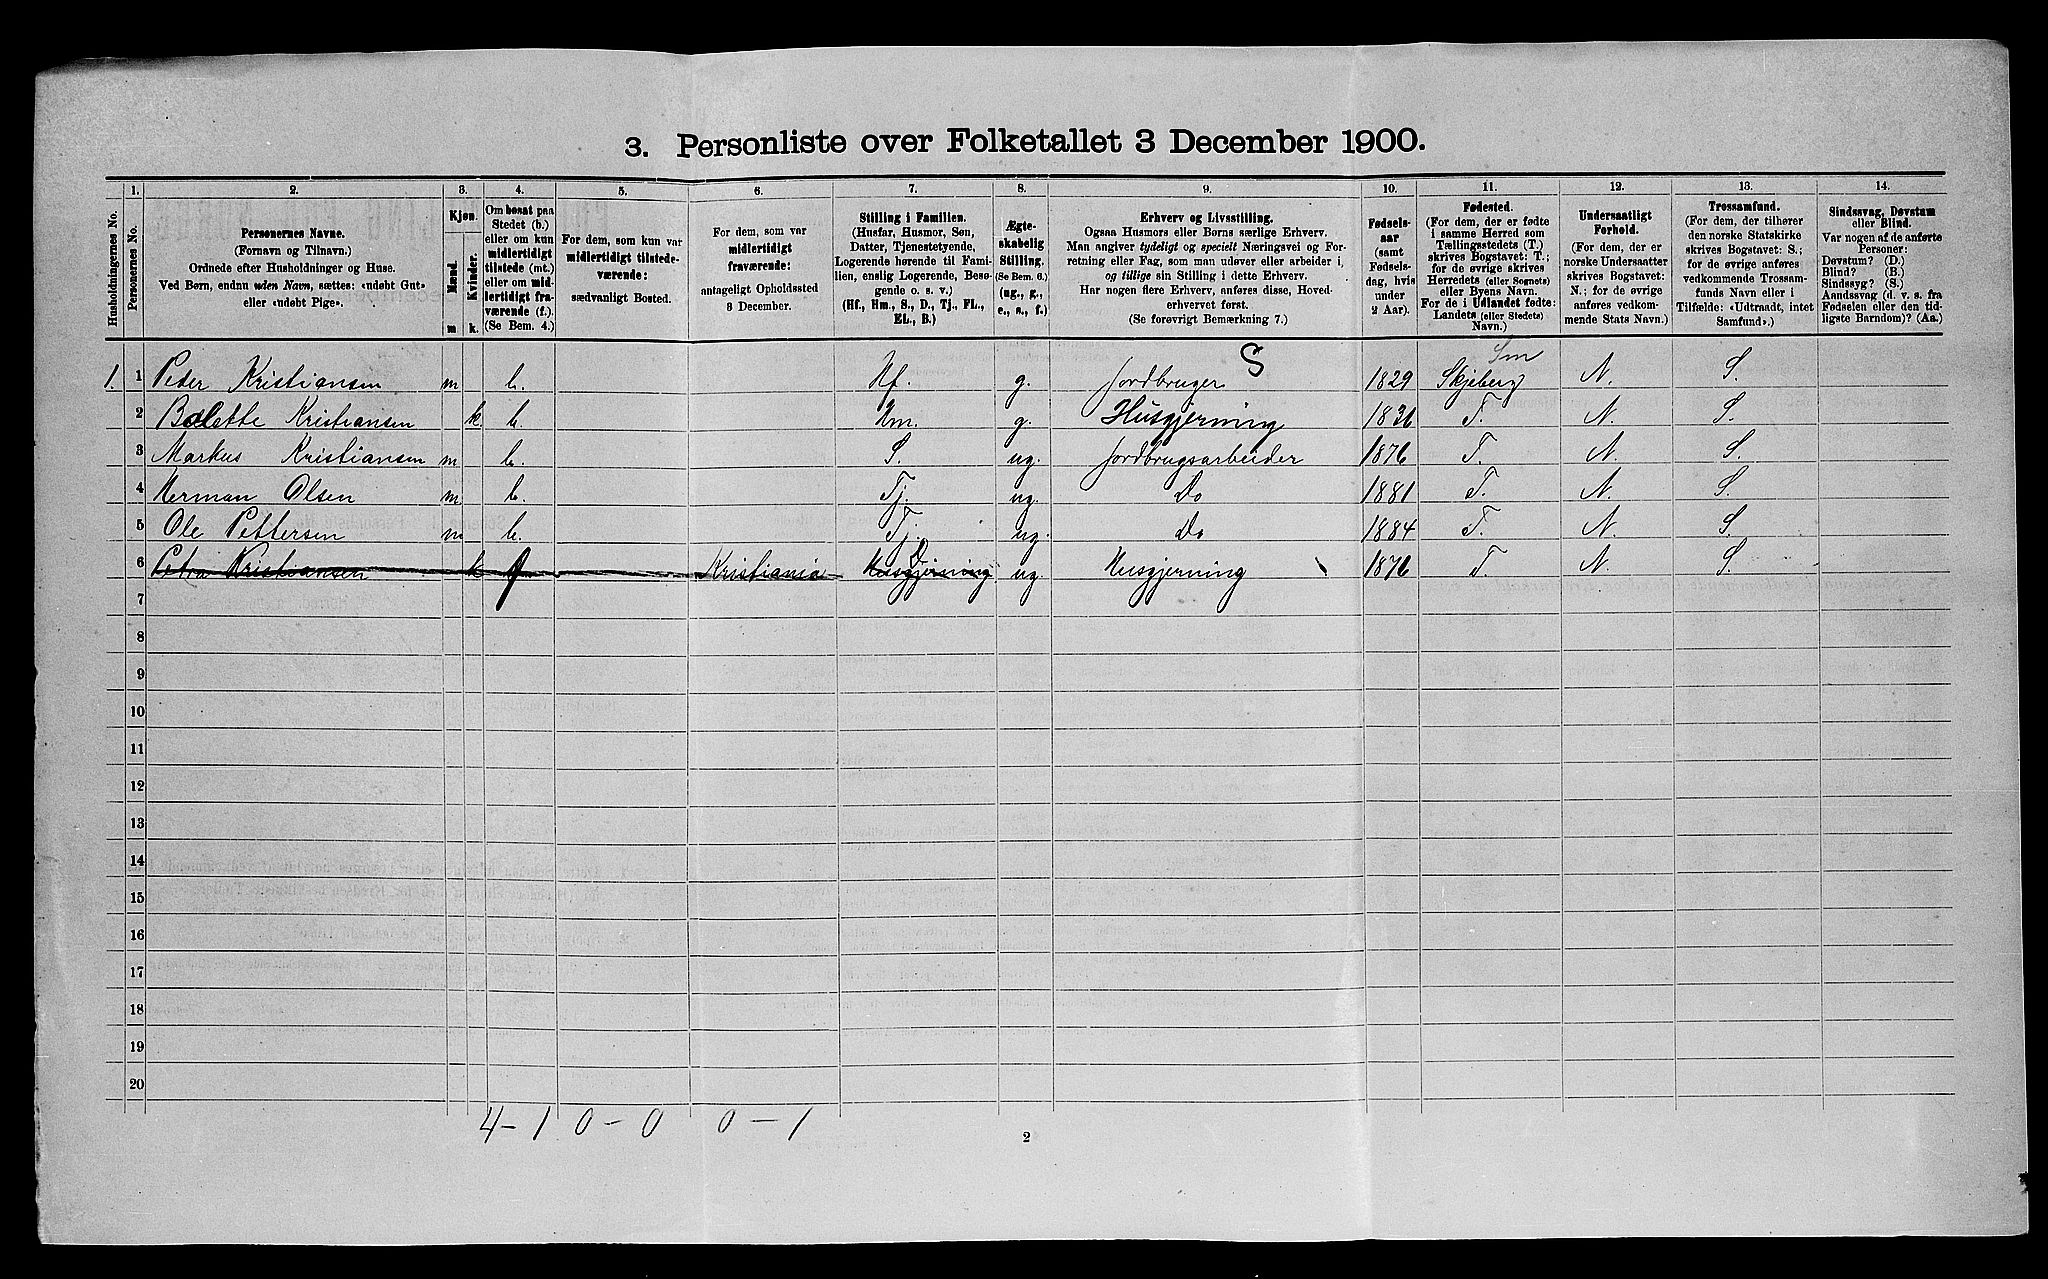 3. Personliste over Folketallet 3 December 1900.
Husholdningernes No.
1.
Personernes No.
2.
Personernes Navne.
(Fornavn og Tilnavn.)
Ordnede efter Husholdninger og Huse.
Ved Børn, endnu uden Navn, sættes: «udøbt Gut»
eller «udøbt Pige».
3.
Kjøn.
Mænd.
Kvinder.
m
k.
4.
Om bosat paa
Stedet (b.)
eller om kun
midlertidigt
tilstede (mt.)
eller om mid-
lertidigt fra-
værende (f.).
(Se Bem. 4.)
5.
For dem, som kun var
midlertidigt tilstede-
værende:
sædvanligt Bosted.
6.
For dem, som var
midlertidigt
fraværende:
antageligt Opholdssted
3 December.
7.
Stilling i Familien.
(Husfar, Husmor, Søn,
Datter, Tjenestetyende,
Logerende hørende til Fami-
lien, enslig Logerende, Besø-
gende o. s. v.)
(Hf., Hm., S., D., Tj., FL.,
EL., B.)
8.
Ægte-
skabelig
Stilling.
(Se Bem. 6.)
(ug., g.,
e., s., f.)
9.
Erhverv og Livsstilling.
Ogsaa Husmors eller Børns særlige Erhverv.
Man angiver tydeligt og specielt Næringsvei og For-
retning eller Fag, som man udøver eller arbeider i,
og tillige sin Stilling i dette Erhverv.
Har nogen flere Erhverv, anføres disse, Hoved-
erhvervet først.
(Se forøvrigt Bemærkning 7.)
10.
Fødsels-
aar
(samt
Fødsels-
dag, hvis
under
2 Aar).
11.
Fødested.
(For dem, der er fødte
i samme Herred som
Tællingsstedets (T.)
skrives Bogstavet: T.;
for de øvrige skrives
Herredets (eller Sognets)
eller Byens Navn.
For de i Udlandet fødte:
Landets (eller Stedets)
Navn.)
12.
Undersaatligt
Forhold.
(For dem, der er
norske Undersaatter
skrives Bogstavet:
N.; for de øvrige
anføres vedkom-
mende Stats Navn.)
13.
Trossamfund.
(For dem, der tilhører
den norske Statskirke
skrives Bogstavet: S.;
for de øvrige anføres
vedkommende Trossam-
funds Navn eller i
Tilfælde: «Udtraadt, intet
Samfund».)
14.
Sindssvag, Døvstum
eller Blind.
Var nogen af de anførte
Personer:
Døvstum? (D.)
Blind? (B.)
Sindssyg? (S.)
Aandssvag (d. v. s. fra
Fødselen eller den tid-
ligste Barndom)? (Aa.)
S Sm
1. 1 Peder Kristiansen m b. Hf. g. Jordbruger 1829 Skjeberg N. S.
2 Bolette Kristiansen k b. Hm. g. Husgjerning 1836 T. N. S.
3 Markus Kristiansen m b. S. ug. Jordbrugsarbeider 1876 T. N. S.
4 Herman Olsen m b. Tj. ug. Do 1881 T. N. S.
5 Ole Pettersen m b. Tj. ug. Do 1884 T. N. S.
D
6 Petra Kristiansen k f Kristiania Husgjerning ug. Husgjerning 1876 T. N. S.
7
8
9
10
11
12
13
14
15
16
17
18
19
20
4-1 0-0 0-1
2